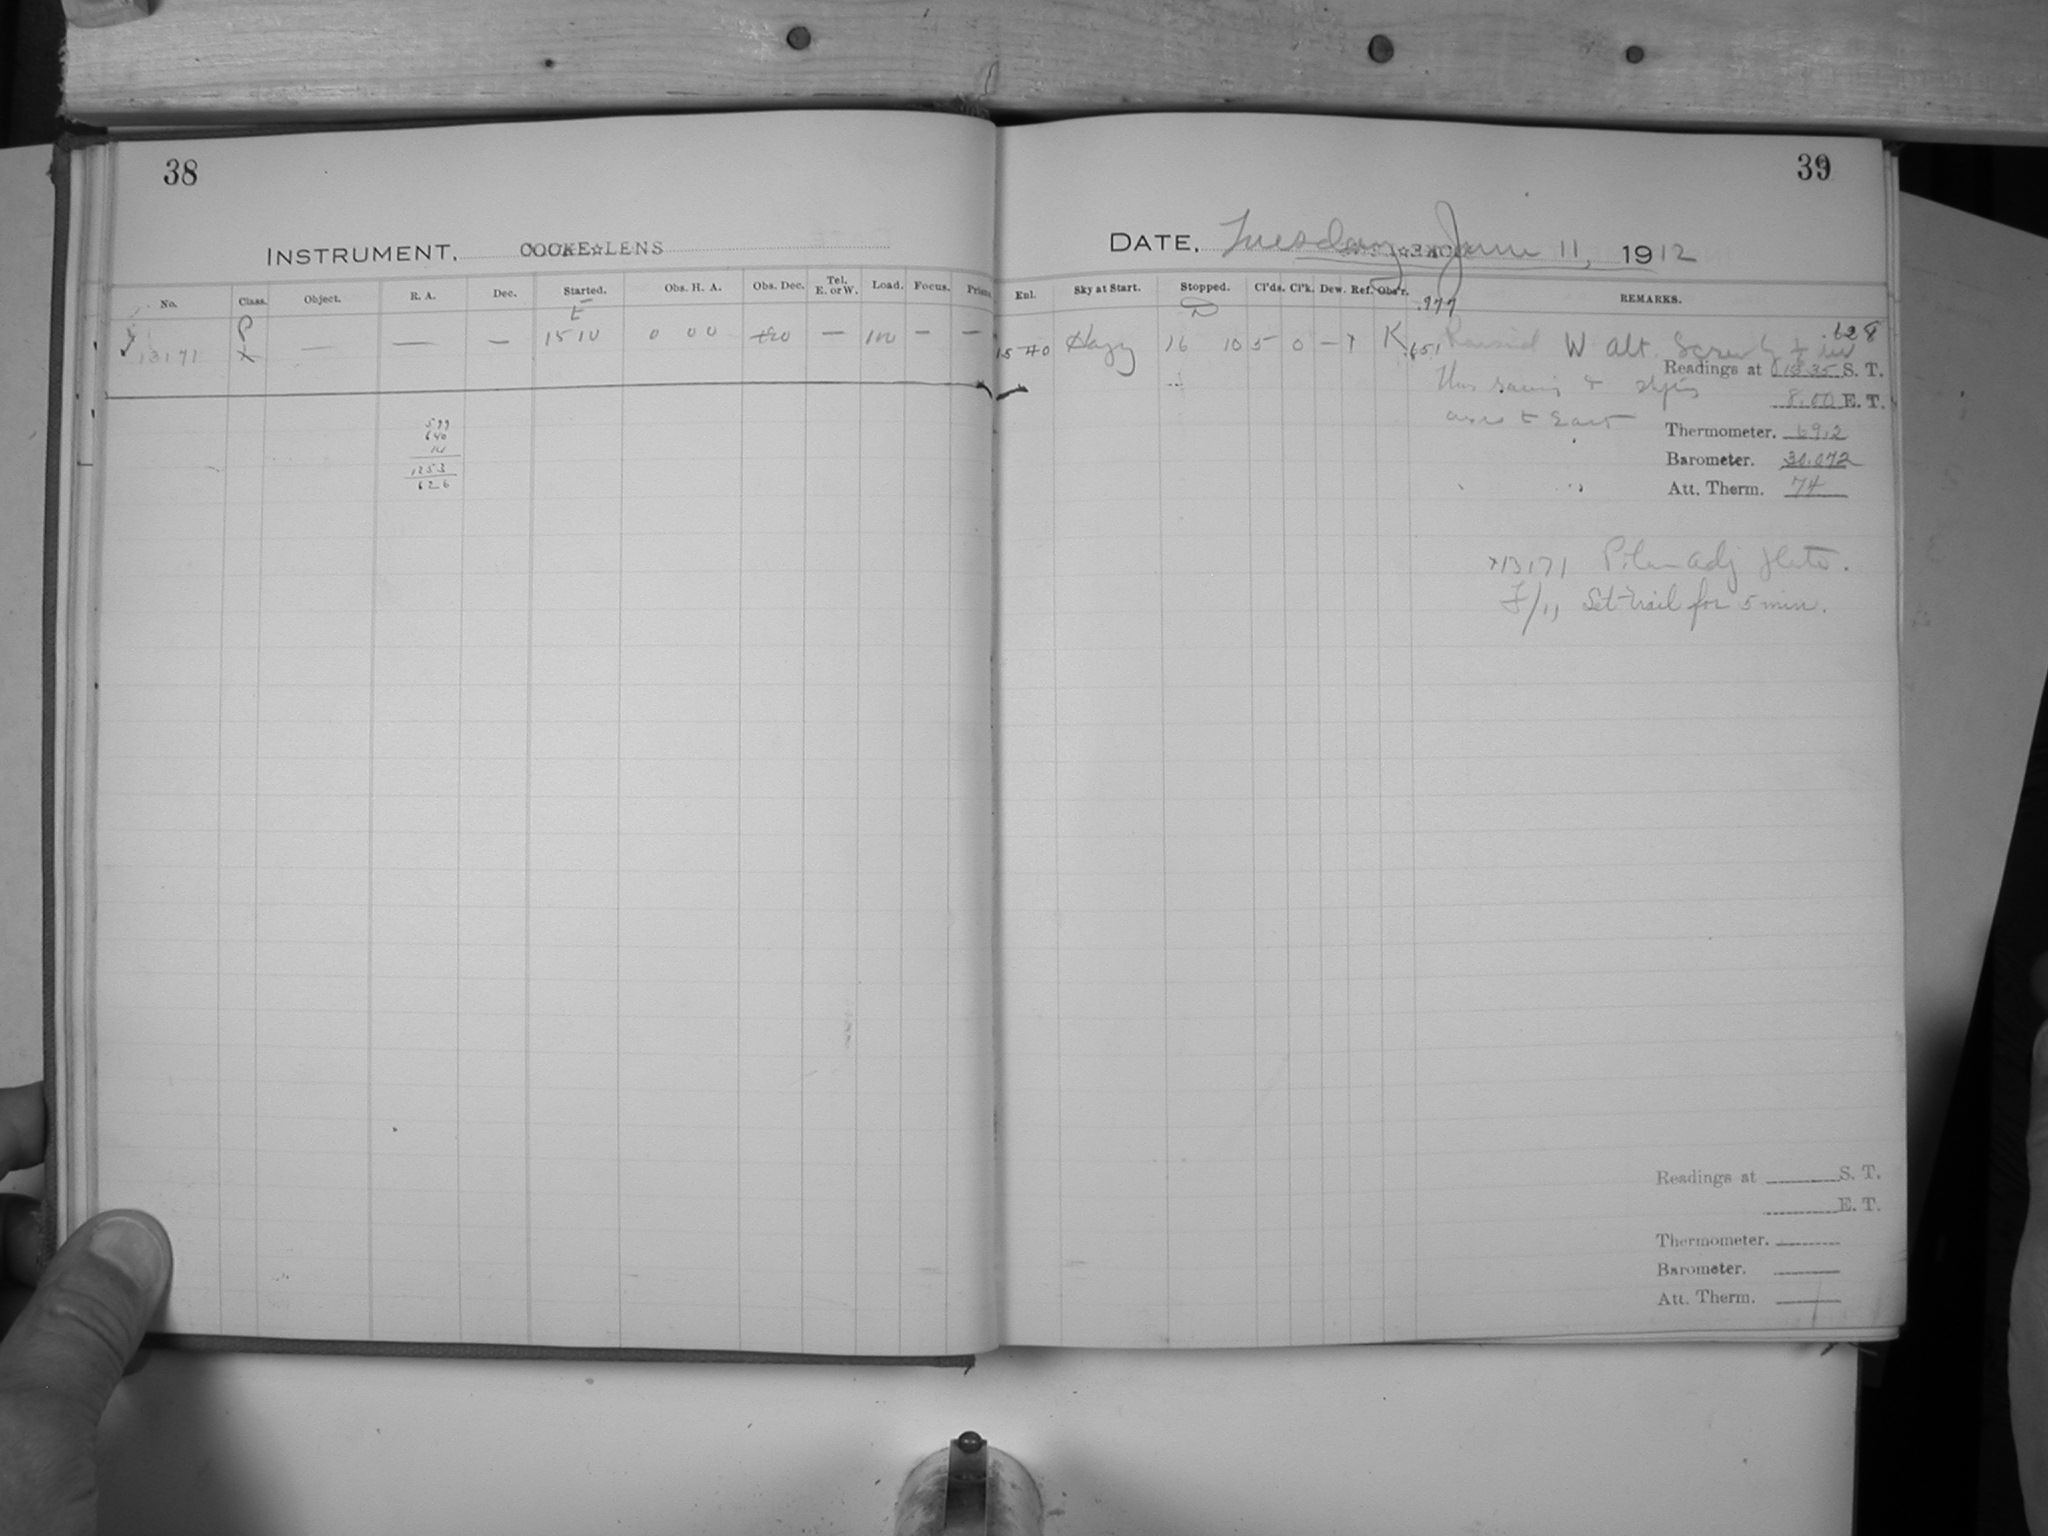 38
INSTRUMENT. COOKE☆LENS
No. Class. Object. R. A. Dec. Started. Obs. H. A. Obs. Dec. Tel. E. or W. Load. Focus. Prism.
E
13171 P x — — — 15 10 0 00 +20 — 100 — —
599
640
14
1253
626
39
DATE, Tuesday June 11, 1912
Enl. Sky at Start. Stopped. Cl'ds. Cl'k. Dew. Ref. Obs'r. REMARKS.
D .977
15 40 Hazy 16 10 5 0 — x K .651 Raised W alt. Screw .628
Readings at 15 35 S. T.
8.00 E. T.
axis to East
Thermometer. 69.2
Barometer. 30.072
Att. Therm. 74
x13171 Polar adj plate.
F/11 Set trail for 5 min.
Readings at S. T.
E. T.
Thermometer.
Barometer.
Att. Therm.